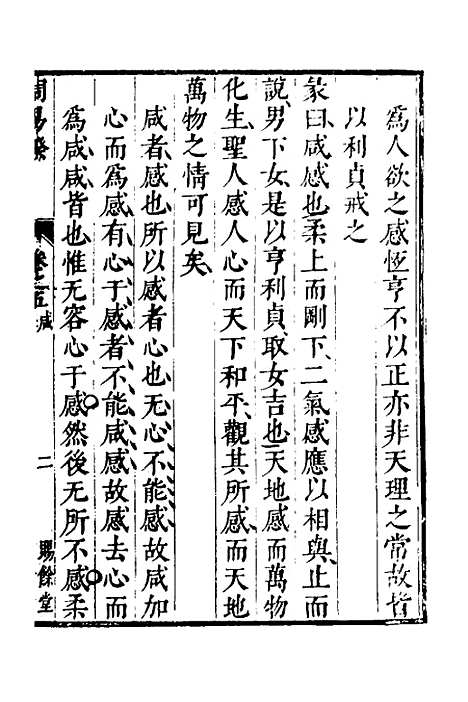 爲人欲之感恆亨不以正亦非天理之常故皆
以利貞戒之
彖曰咸感也柔上而剛下二氣感應以相與止而
說男下女是以亨利貞取女吉也天地感而萬物
化生聖人感人心而天下和平觀其所感而天地
萬物之情可見矣
咸者感也所以感者心也无心不能感故咸加
心而爲感有心于感者不能咸感故感去心而
爲咸咸皆也惟无容心于感然後无所不感柔
周易 卷之五 咸 二 賜餘堂